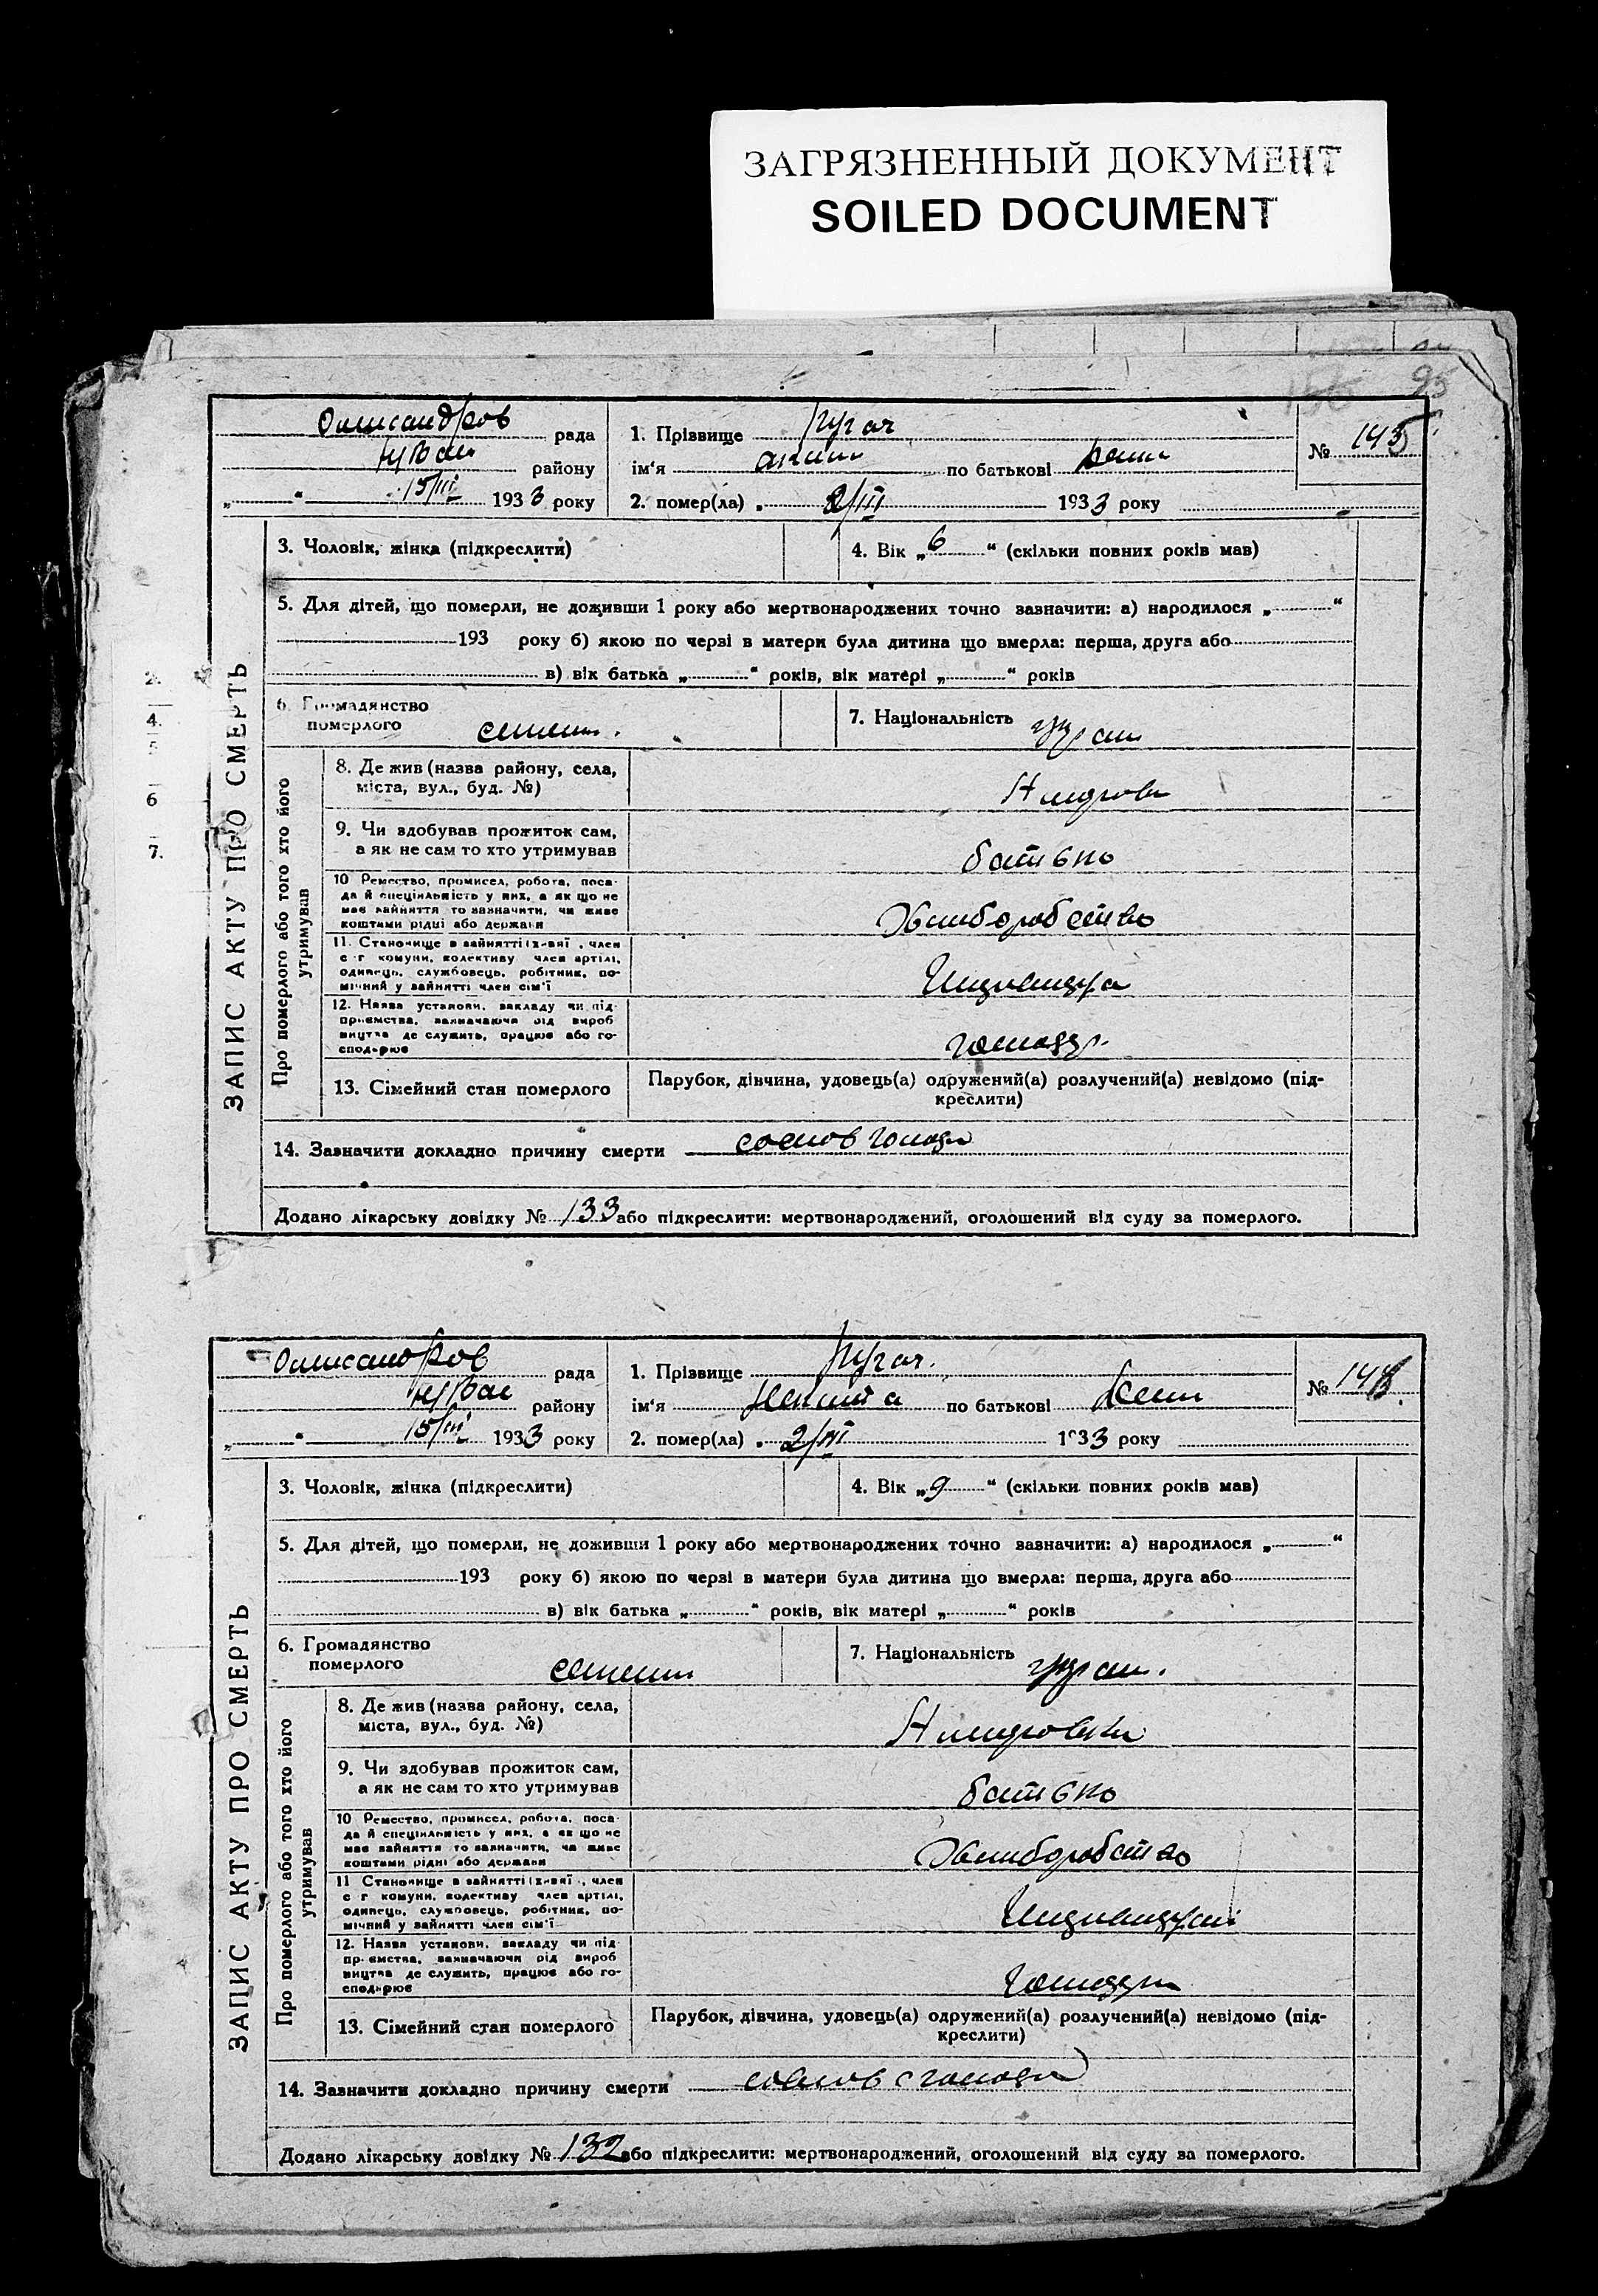 ЗАГРЯЗНЕННЫЙ ДОКУМЕНТ
SOILED DOCUMENT
95
рада
району
15/III 1933 року
1. Прізвище Пугач
ім'я по батькові
2. помер(ла) 2/III 1933 року
№ 145
ЗАПИС АКТУ ПРО СМЕРТЬ
3. Чоловік, жінка (підкреслити)
4. Вік „6“ (скільки повних років мав)
5. Для дітей, що померли, не доживши 1 року або мертвонароджених точно зазначити: а) народилося „ “
193 року б) якою по черзі в матери була дитина що вмерла: перша, друга або
в) вік батька „ “ років, вік матері „ “ років
6. Громадянство
померлого
7. Національність
Про померлого або того хто його
утримував
8. Де жив (назва району, села,
міста, вул., буд. №)
9. Чи здобував прожиток сам,
а як не сам то хто утримував
батько
10 Ремество, промисел, робота, поса-
да й спеціяльність у них, а як що не
має зайняття то зазначити, чи живе
коштами рідні або держави
Хліборобство
11. Становище в зайнятті , член
с-г комуни, колективу член артілі,
одинець, службовець, робітник, по-
мічний у зайнятті член сім'ї
12. Назва установи, закладу чи під-
приємства, зазначаючи рід вироб
ництва де служить, працює або го-
сподарює
13. Сімейний стан померлого
Парубок, дівчина, удовець(а) одружений(а) розлучений(а) невідомо (під-
креслити)
14. Зазначити докладно причину смерти
Додано лікарську довідку № 133 або підкреслити: мертвонароджений, оголошений від суду за померлого.
рада
району
15/III 1933 року
1. Прізвище Пугач.
ім'я по батькові
2. помер(ла) 2/III 1933 року
№
ЗАПИС АКТУ ПРО СМЕРТЬ
3. Чоловік, жінка (підкреслити)
4. Вік „9“ (скільки повних років мав)
5. Для дітей, що померли, не доживши 1 року або мертвонароджених точно зазначити: а) народилося „ “
193 року б) якою по черзі в матери була дитина що вмерла: перша, друга або
в) вік батька „ “ років, вік матері „ “ років
6. Громадянство
померлого
7. Національність
Про померлого або того хто його
утримував
8. Де жив (назва району, села,
міста, вул., буд. №)
9. Чи здобував прожиток сам,
а як не сам то хто утримував
батько
10 Ремество, промисел, робота, поса-
да й спеціяльність у них, а як що не
має зайняття то зазначити, чи живе
коштами рідні або держави
Хліборобство
11 Становище в зайнятті , член
с г комуни, колективу член артілі,
одинець, службовець, робітник, по-
мічний у зайнятті член сім'ї
12. Назва установи, закладу чи під-
приємства, зазначаючи рід вироб
ництва де служить, працює або го-
сподарює
13. Сімейний стан померлого
Парубок, дівчина, удовець(а) одружений(а) розлучений(а) невідомо (під-
креслити)
14. Зазначити докладно причину смерти
Додано лікарську довідку № 132 або підкреслити: мертвонароджений, оголошений від суду за померлого.